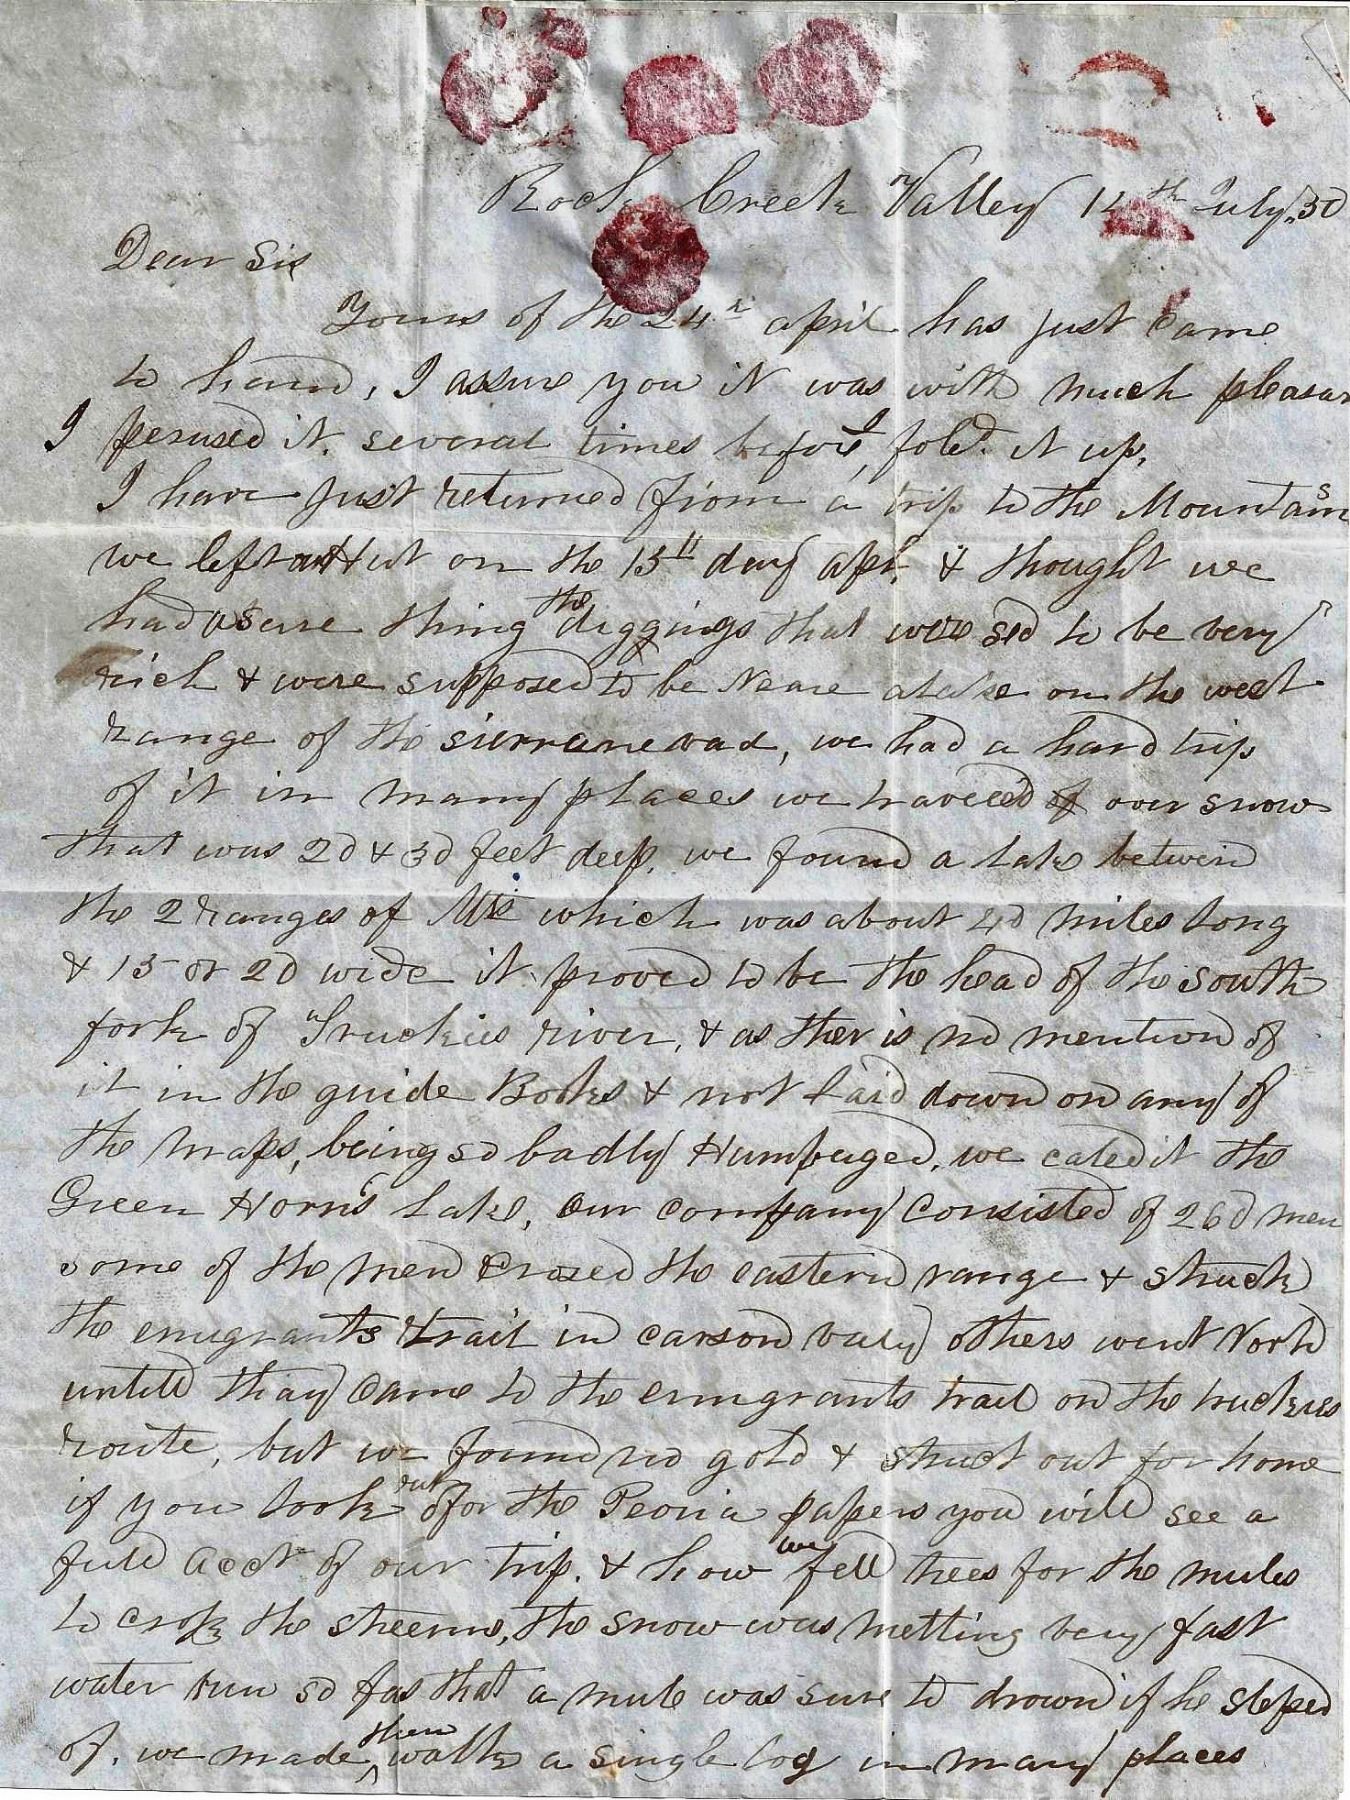 Rock Creek Valley 14th July, 50
Dear Sis
Yours of the 24th april has just came
to hand, I assure you it was with much pleasur
I perused it. several times before I fold. it up,
I have just returned from a trip to the Mountains
we left our Hut on the 15th day apr. & thought we
had a sure thing the diggings that were sed to be very
rich & were supposed to be Neare a lake on the west
range of the sierranevad, we had a hard trip
of it in many places we traveled over snow
that was 20 & 30 feet deep. we found a Lake between
the 2 ranges of Mts which was about 40 miles long
& 15 or 20 wide it proved to be the head of the south
fork of Truckies river, & as ther is no mention of
it in the guide Books & not laid down on any of
the maps, being so badly Humbuged, we caled it the
Green Horn's Lake, Our company Consisted of 260 men
some of the men Crosed the eastern range & struck
the emugrants trail in carson vally others went North
untill thay Came to the emigrants trail on the truckies
route, but we found no gold & struct out for home
if you look out for the Peoria papers you will see a
full acct of our trip. & how we fell trees for the mules
to cross the streems, the snow was melting very fast
water run so fas that a mule was sure to drown if he steped
of. we made them walk a single log in many places